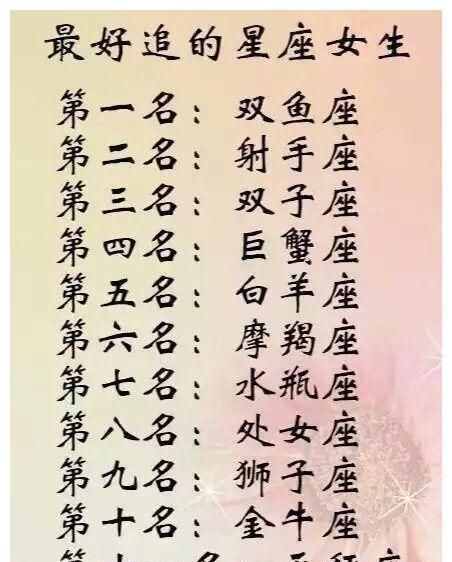 最好追的星座女生
第一名：双鱼座
第二名：射手座
第三名：双子座
第四名：巨蟹座
第五名：白羊座
第六名：摩羯座
第七名：水瓶座
第八名：处女座
第九名：狮子座
第十名：金牛座